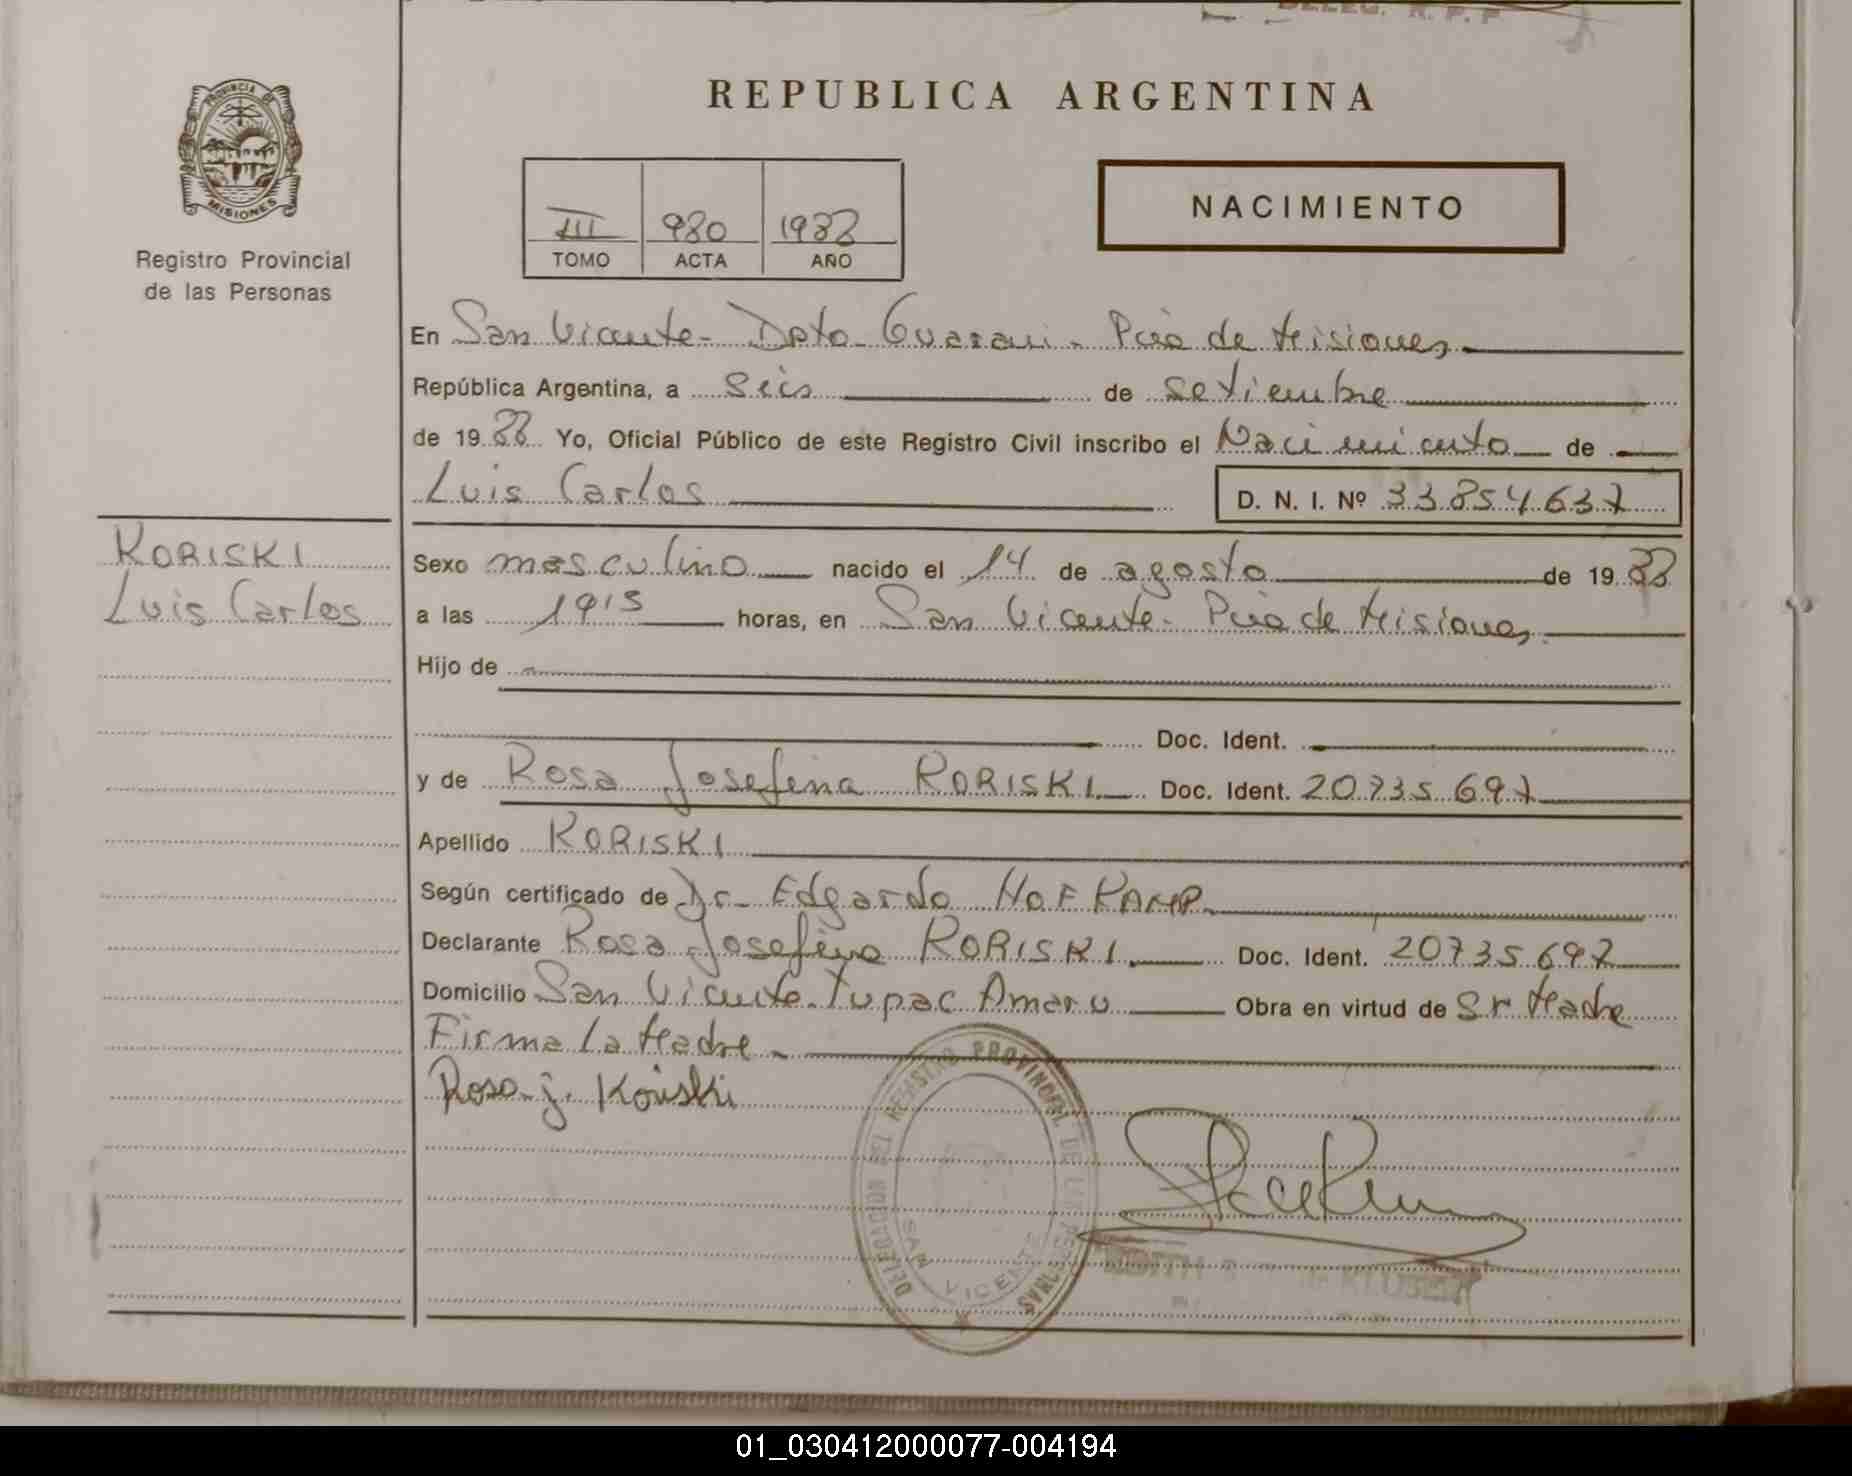 DELEG. R. P. P
REPUBLICA ARGENTINA
PROVINCIA DE
MISIONES
Registro Provincial
de las Personas
III 980 1988
TOMO ACTA AÑO
NACIMIENTO
En San Vicente - Dpto Guarani - Pcia de Misiones,
República Argentina, a seis de setiembre
de 1988 Yo, Oficial Público de este Registro Civil inscribo el Nacimiento de
Luis Carlos D. N. I. Nº 33.854.637
KORISKI
Luis Carlos
Sexo masculino nacido el 14 de agosto de 1988
a las 1915 horas, en San Vicente - Pcia de Misiones,
Hijo de
Doc. Ident.
y de Rosa Josefina KORISKI Doc. Ident. 20735697
Apellido KORISKI
Según certificado de Dr. Edgardo HOFKAMP
Declarante Rosa Josefina KORISKI Doc. Ident. 20735697
Domicilio San Vicente - Tupac Amaru Obra en virtud de Sr Madre
Firma la Madre -
Rosa j. Koriski
DELEGACION DEL REGISTRO PROVINCIAL DE LAS PERSONAS
SAN VICENTE
de KLUBER
01_030412000077-004194